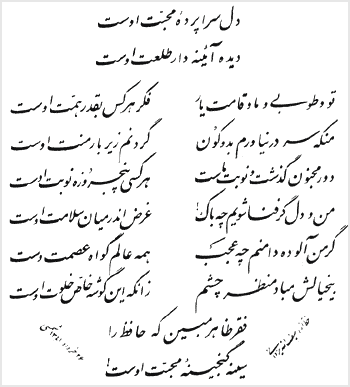 دل سراپردهٔ محبّت اوست
دیده آئینه دار طلعت اوست
تو و طوبی و ما و قامت یار فکر هر کس بقدر همّت اوست
منکه سر در نیاورم بدو کون گردنم زیر بار منّت اوست
دور مجنون گذشت و نوبت ماست هر کسی پنجروزه نوبت اوست
من و دل گر فنا شویم چه باک غرض اندر میان سلامت اوست
گر من آلوده دامنم چه عجب همه عالم گواه عصمت اوست
بیخیالش مباد منظر چشم زانکه این گوشه خاص خلوت اوست
فقر ظاهر مبین که حافظ را
سینه گنجینهٔ محبّت اوست